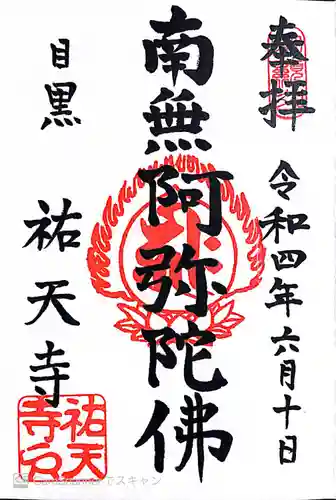 奉拝
令和四年六月十日
南無阿弥陀佛
目黒
祐天寺
祐天
寺印
でスキャン